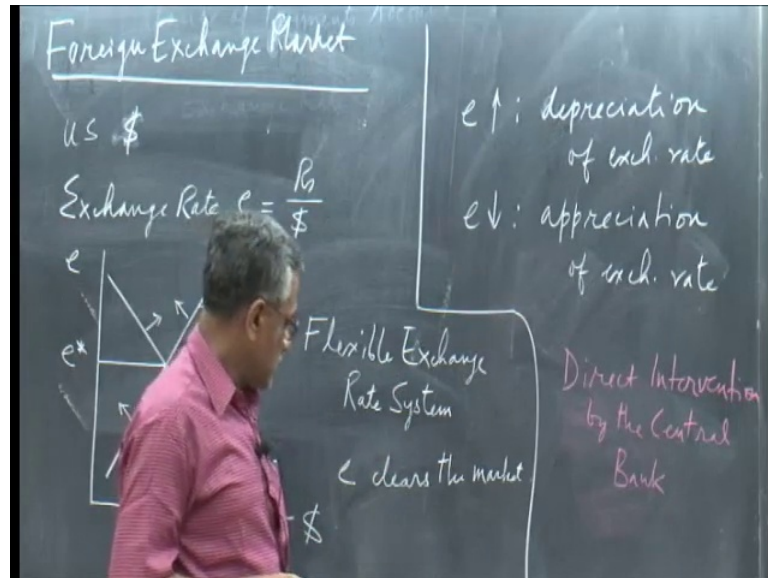 Foreign Exchange Market
US $
Exchange Rate e = Rs
$
e
e*
$
Flexible Exchange
Rate System
e clears the market
e ↑ : depreciation
of exch. rate
e ↓ : appreciation
of exch. rate
Direct Intervention
by the Central
Bank